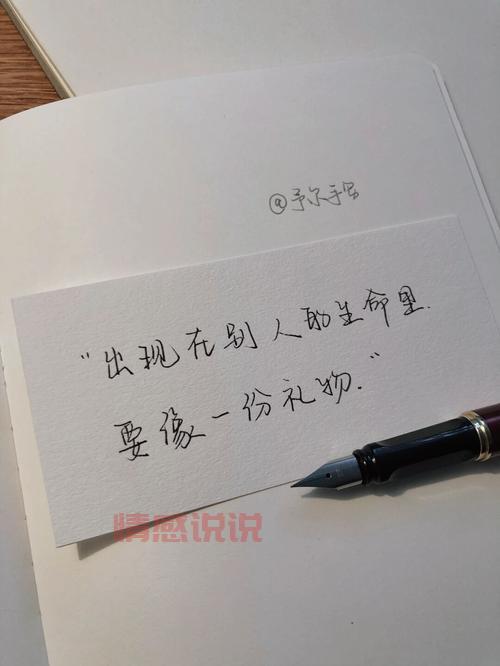 @予尔手写
“出现在别人的生命里.
要像一份礼物.”
情感说说